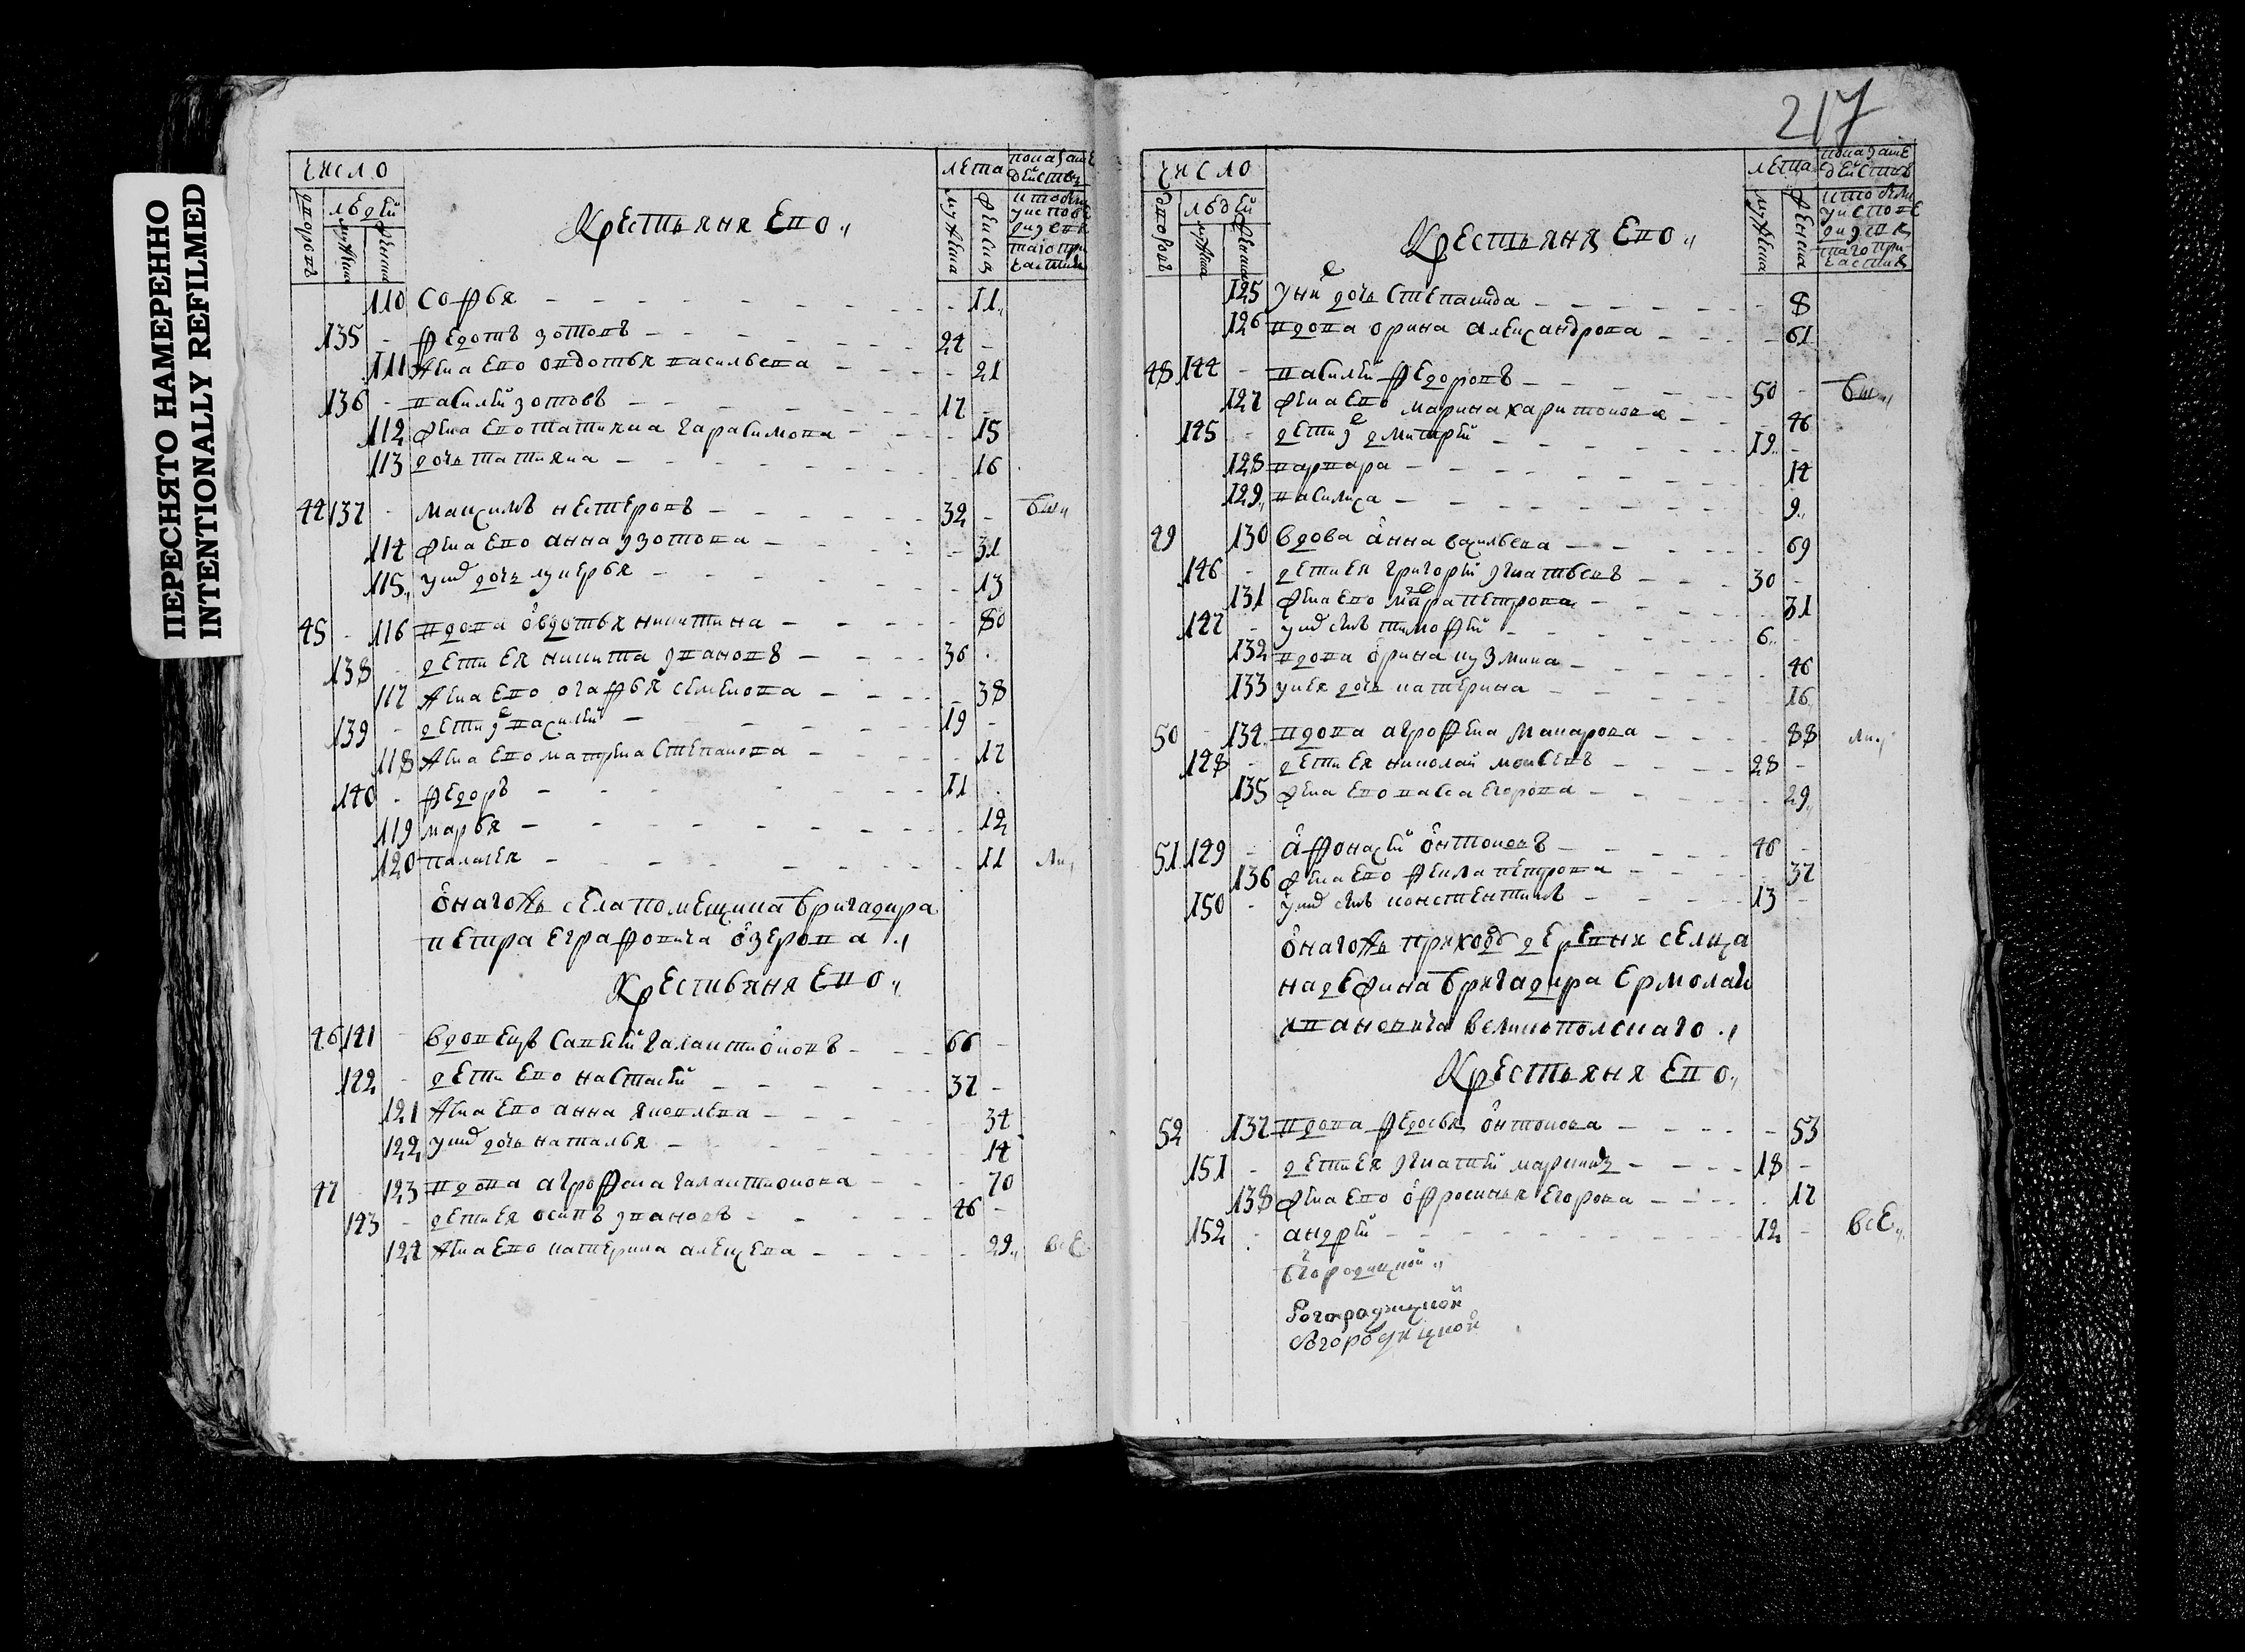 ПЕРЕСНЯТО НАМЕРЕННО
INTENTIONALLY REFILMED
число
людей
лета
Крестьяня Ево
110 Софья 11
135 Федотъ Зотовъ 24
111 жена ево Овдотья Васильева 21
136 Василей Зотовъ 17
112 жена ево Татияна Гарасимова 15
113 дочь Татияна 16
44 137 Максимъ Нестеровъ 32
114 жена ево Анна Изотова 31
115 дочь Лукерья 13
45 116 вдова Овдотья Никитина 80
138 дети ея Никита Ивановъ 36
117 жена ево Огафья Семенова 38
139 дети Василей 19
118 жена ево Матрена Степанова 17
140 Федоръ 11
119 Марья 12
120 Палагея 11
Онагожъ села помещика бригадира
Петра Еграфовича Озерова
Крестьяня Ево
46 141 вдовецъ Савелей Галактионовъ 66
142 дети ево Настасей 37
121 жена ево Анна Яковлева 34
122 дочь Наталья 14
47 123 вдова Агрофена Галактионова 70
143 дети ея Осипъ Ивановъ 46
124 жена ево Катерина Алексева 29 все
217
число
людей
лета
Крестьяня Ево
125 у ни дочь Степанида 8
126 вдова Орина Александрова 61
48 144 Василей Федоровъ 50
127 жена ево Марина Харитонова 46
145 дети Дмитрей 19
128 Варвара 14
129 Василиса 9
49 130 вдова Анна Васильева 69
146 дети ея Григорей Игнатьевъ 30
131 жена ево Петрова 31
147 сынъ Тимофей 6
132 вдова Орина Кузмина 46
133 у нея дочь Катерина 16
50 134 вдова Агрофена Макарова 88
148 дети ея Николай Моисеевъ 28
135 жена ево Егорова 29
51 149 Афонасей Онтоновъ 46
136 жена ево Фекла Петрова 37
150 сынъ Констентинъ 13
Онагожъ приходу деревня селца
Надежина бригадира Ермолай
Ивановича Великополскаго
Крестьяня Ево
52 137 вдова Федосья Онтонова 53
151 дети ея Игнатей 18
138 жена ево Офросинья Егорова 17
152 Андрей 12 все
Бгородицкой
Богородицкой
Богородицкой